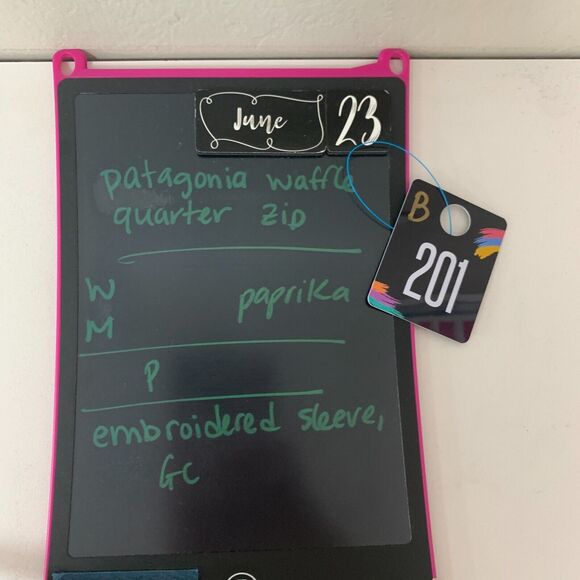 June 23
patagonia waffle
quarter zip
B
201
W paprika
M
P
embroidered sleeve,
GC